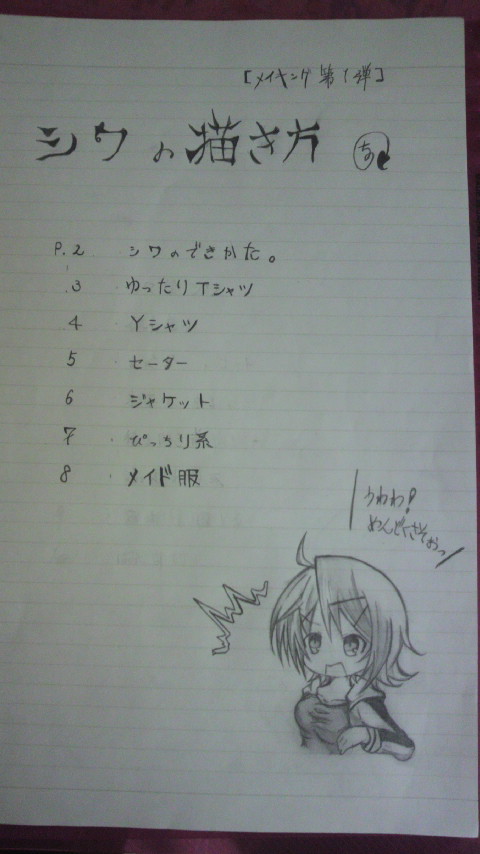 [メイキング 第1弾]
シワの描き方
P.2 シワのできかた。
3 ゆったりTシャツ
4 Yシャツ
5 セーター
6 ジャケット
7 ぴっちり系
8 メイド服
うわわ!
めんどくさそぉっ